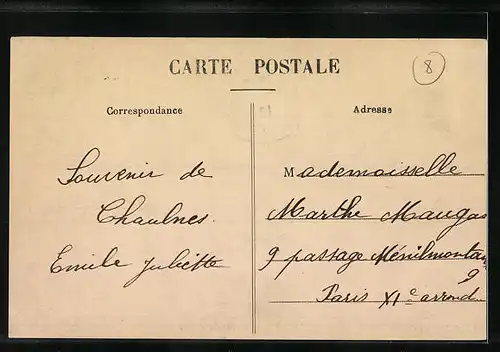 CARTE POSTALE
8
Correspondance
Adresse
Souvenir de
Chaulnes.
Emile Juliette
Mademoisselle
Marthe Maugas
9 passage Ménilmontant
9
Paris XIe arrond.